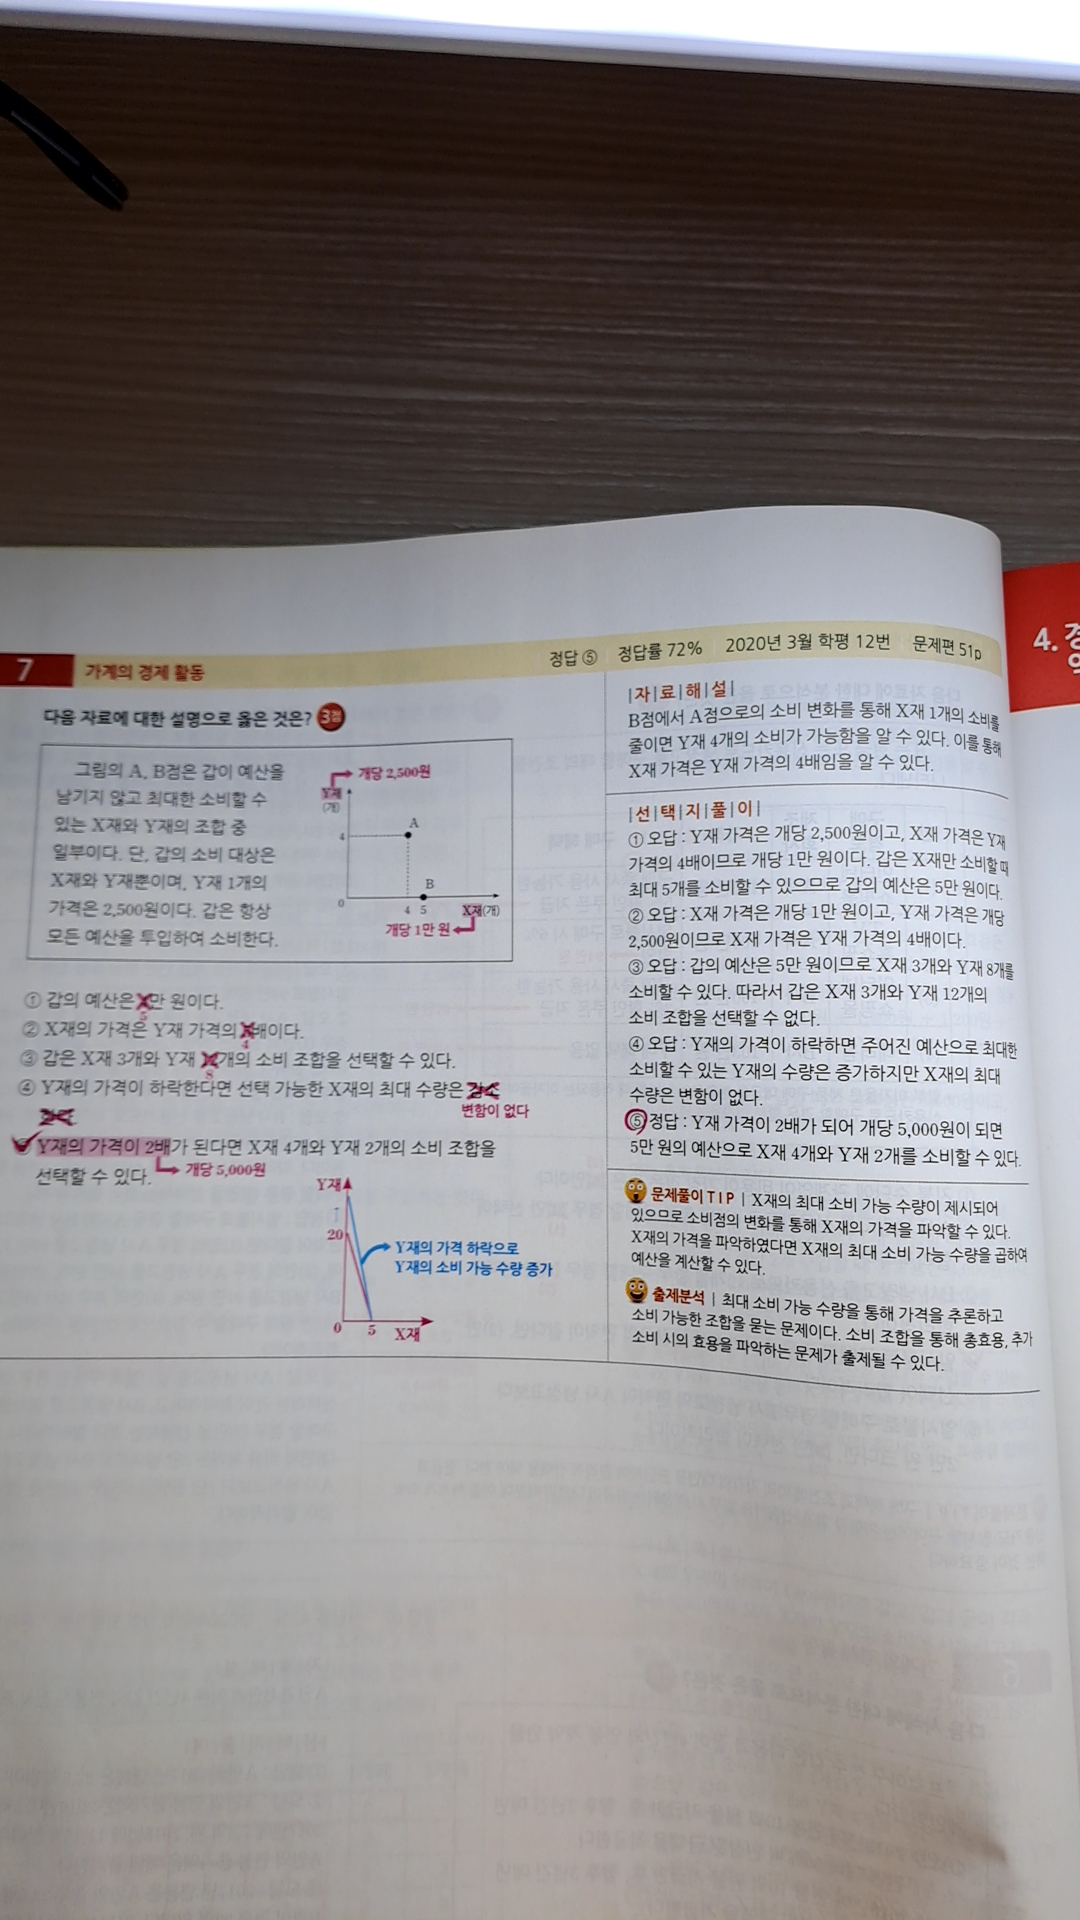 4. 경
7 가계의 경제 활동
정답 ⑤ 정답률 72% 2020년 3월 학평 12번 문제편 51p
다음 자료에 대한 설명으로 옳은 것은? 3점
그림의 A, B점은 갑이 예산을
남기지 않고 최대한 소비할 수
있는 X재와 Y재의 조합 중
일부이다. 단, 갑의 소비 대상은
X재와 Y재뿐이며, Y재 1개의
가격은 2,500원이다. 갑은 항상
모든 예산을 투입하여 소비한다.
개당 2,500원
Y재
(개)
A
4
B
0 4 5 X재(개)
개당 1만 원
① 갑의 예산은 만 원이다.
5
② X재의 가격은 Y재 가격의 배이다.
4
③ 갑은 X재 3개와 Y재 개의 소비 조합을 선택할 수 있다.
8
④ Y재의 가격이 하락한다면 선택 가능한 X재의 최대 수량은 감소
변함이 없다
Y재의 가격이 2배가 된다면 X재 4개와 Y재 2개의 소비 조합을
선택할 수 있다.
개당 5,000원
Y재
20
Y재의 가격 하락으로
Y재의 소비 가능 수량 증가
0 5 X재
|자|료|해|설|
B점에서 A점으로의 소비 변화를 통해 X재 1개의 소비를
줄이면 Y재 4개의 소비가 가능함을 알 수 있다. 이를 통해
X재 가격은 Y재 가격의 4배임을 알 수 있다.
|선|택|지|풀|이|
① 오답 : Y재 가격은 개당 2,500원이고, X재 가격은 Y재
가격의 4배이므로 개당 1만 원이다. 갑은 X재만 소비할 때
최대 5개를 소비할 수 있으므로 갑의 예산은 5만 원이다.
② 오답 : X재 가격은 개당 1만 원이고, Y재 가격은 개당
2,500원이므로 X재 가격은 Y재 가격의 4배이다.
③ 오답 : 갑의 예산은 5만 원이므로 X재 3개와 Y재 8개를
소비할 수 있다. 따라서 갑은 X재 3개와 Y재 12개의
소비 조합을 선택할 수 없다.
④ 오답 : Y재의 가격이 하락하면 주어진 예산으로 최대한
소비할 수 있는 Y재의 수량은 증가하지만 X재의 최대
수량은 변함이 없다.
⑤ 정답 : Y재 가격이 2배가 되어 개당 5,000원이 되면
5만 원의 예산으로 X재 4개와 Y재 2개를 소비할 수 있다.
문제풀이 T I P | X재의 최대 소비 가능 수량이 제시되어
있으므로 소비점의 변화를 통해 X재의 가격을 파악할 수 있다.
X재의 가격을 파악하였다면 X재의 최대 소비 가능 수량을 곱하여
예산을 계산할 수 있다.
출제분석 | 최대 소비 가능 수량을 통해 가격을 추론하고
소비 가능한 조합을 묻는 문제이다. 소비 조합을 통해 총효용, 추가
소비 시의 효용을 파악하는 문제가 출제될 수 있다.